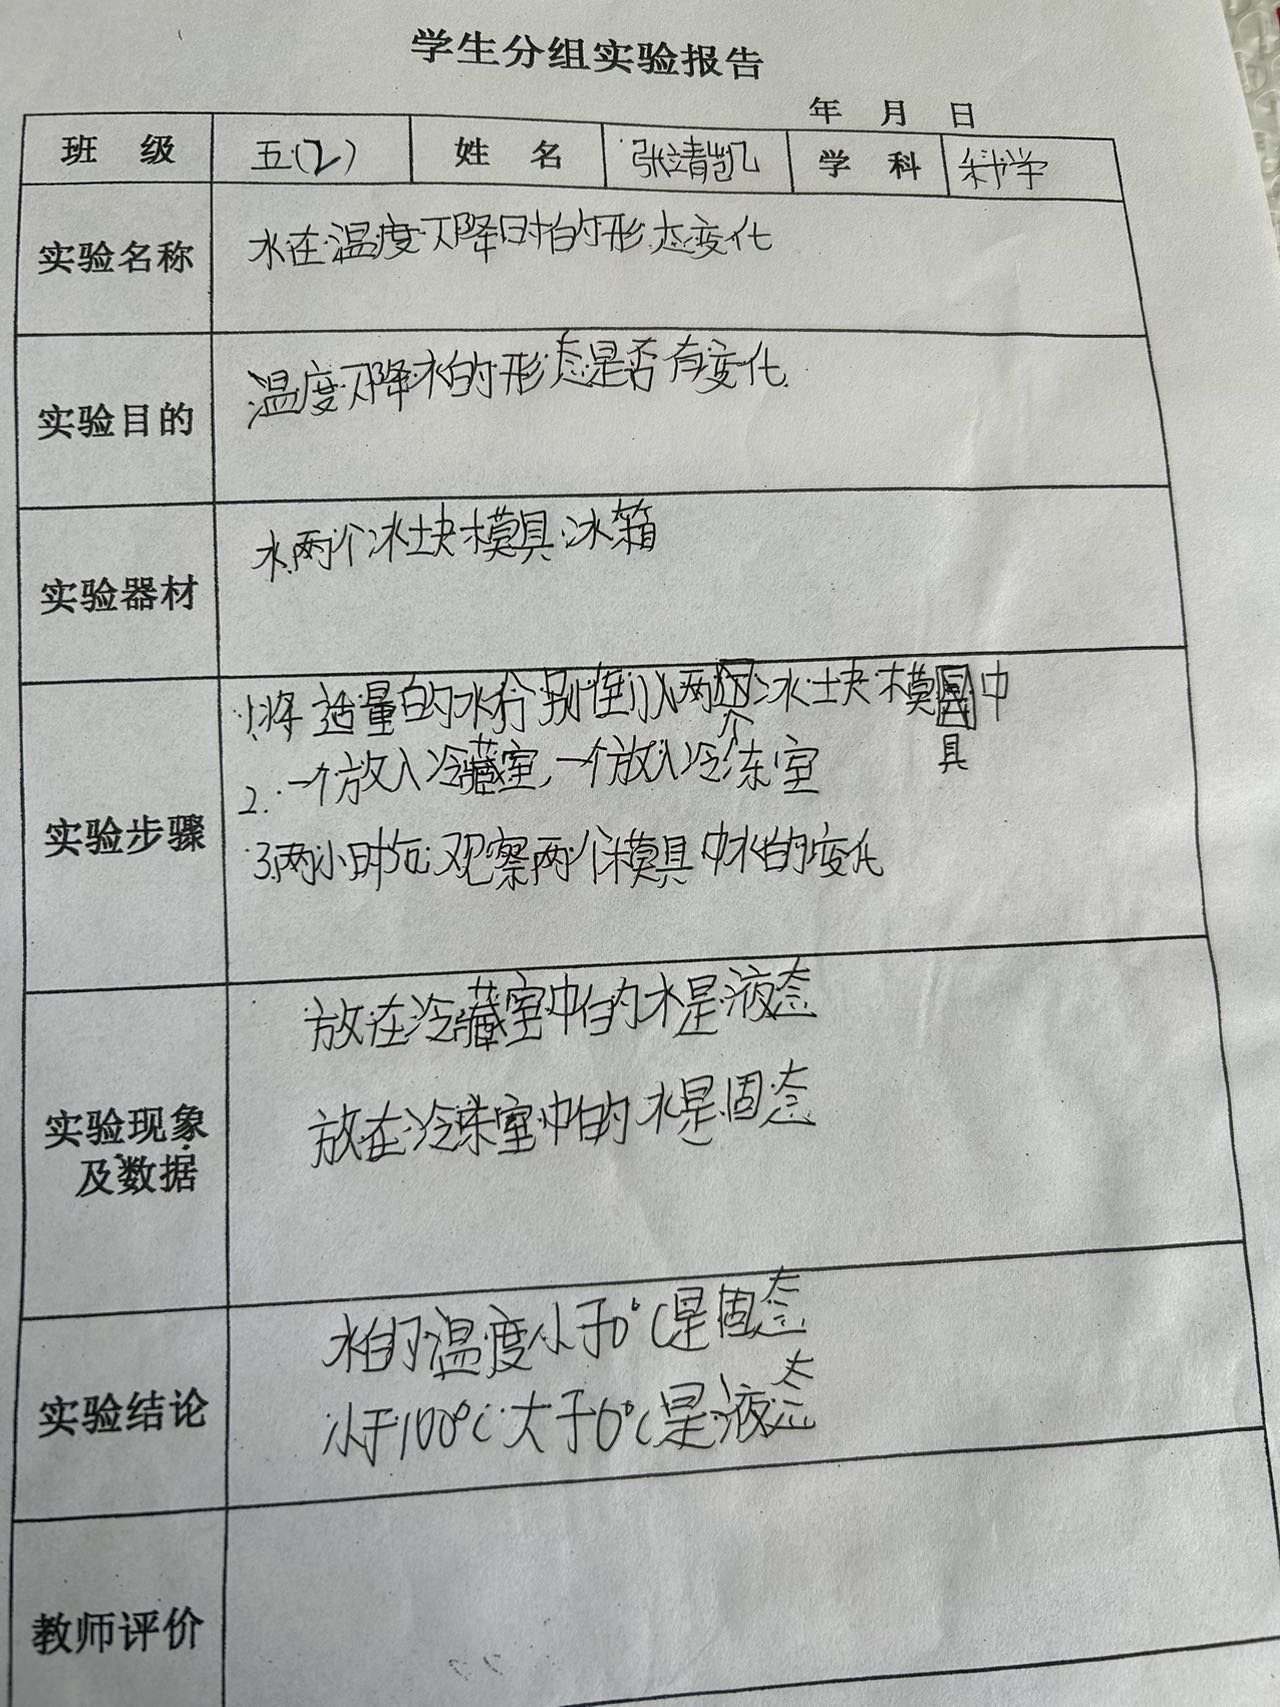 学生分组实验报告
年 月 日
班 级 五(2) 姓 名 张靖凯 学 科 科学
实验名称 水在温度下降时的形态变化
实验目的 温度下降水的形态是否有变化.
实验器材 水、两个冰块模具、冰箱
实验步骤
1.将适量的水分别倒入两个冰块模具中
2.一个放入冷藏室,一个放入冷冻室
3.两小时后观察两个模具中水的变化
实验现象
及数据
放在冷藏室中的水是液态
放在冷冻室中的水是固态
实验结论
水的温度小于0℃是固态
小于100℃大于0℃是液态
教师评价